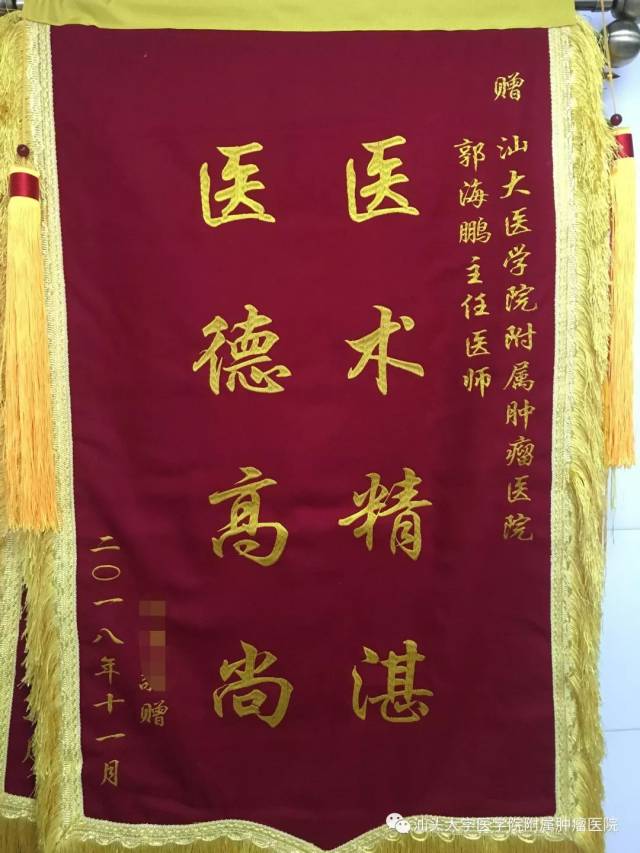 赠 汕大医学院附属肿瘤医院
郭海鹏主任医师
医术精湛
医德高尚
赠
二〇一八年十一月
汕头大学医学院附属肿瘤医院